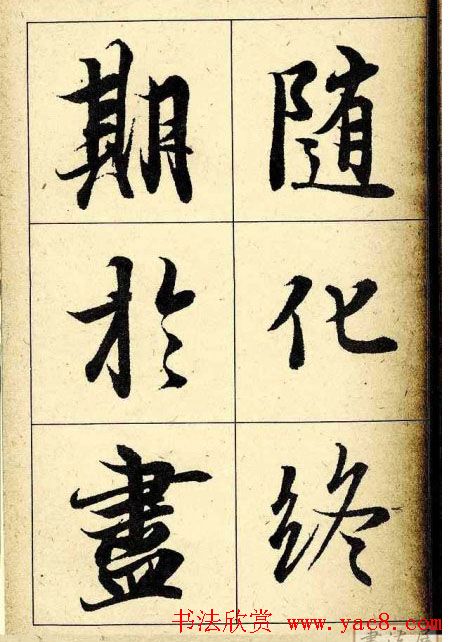 随化终
期於盡
书法欣赏 www.yac8.com